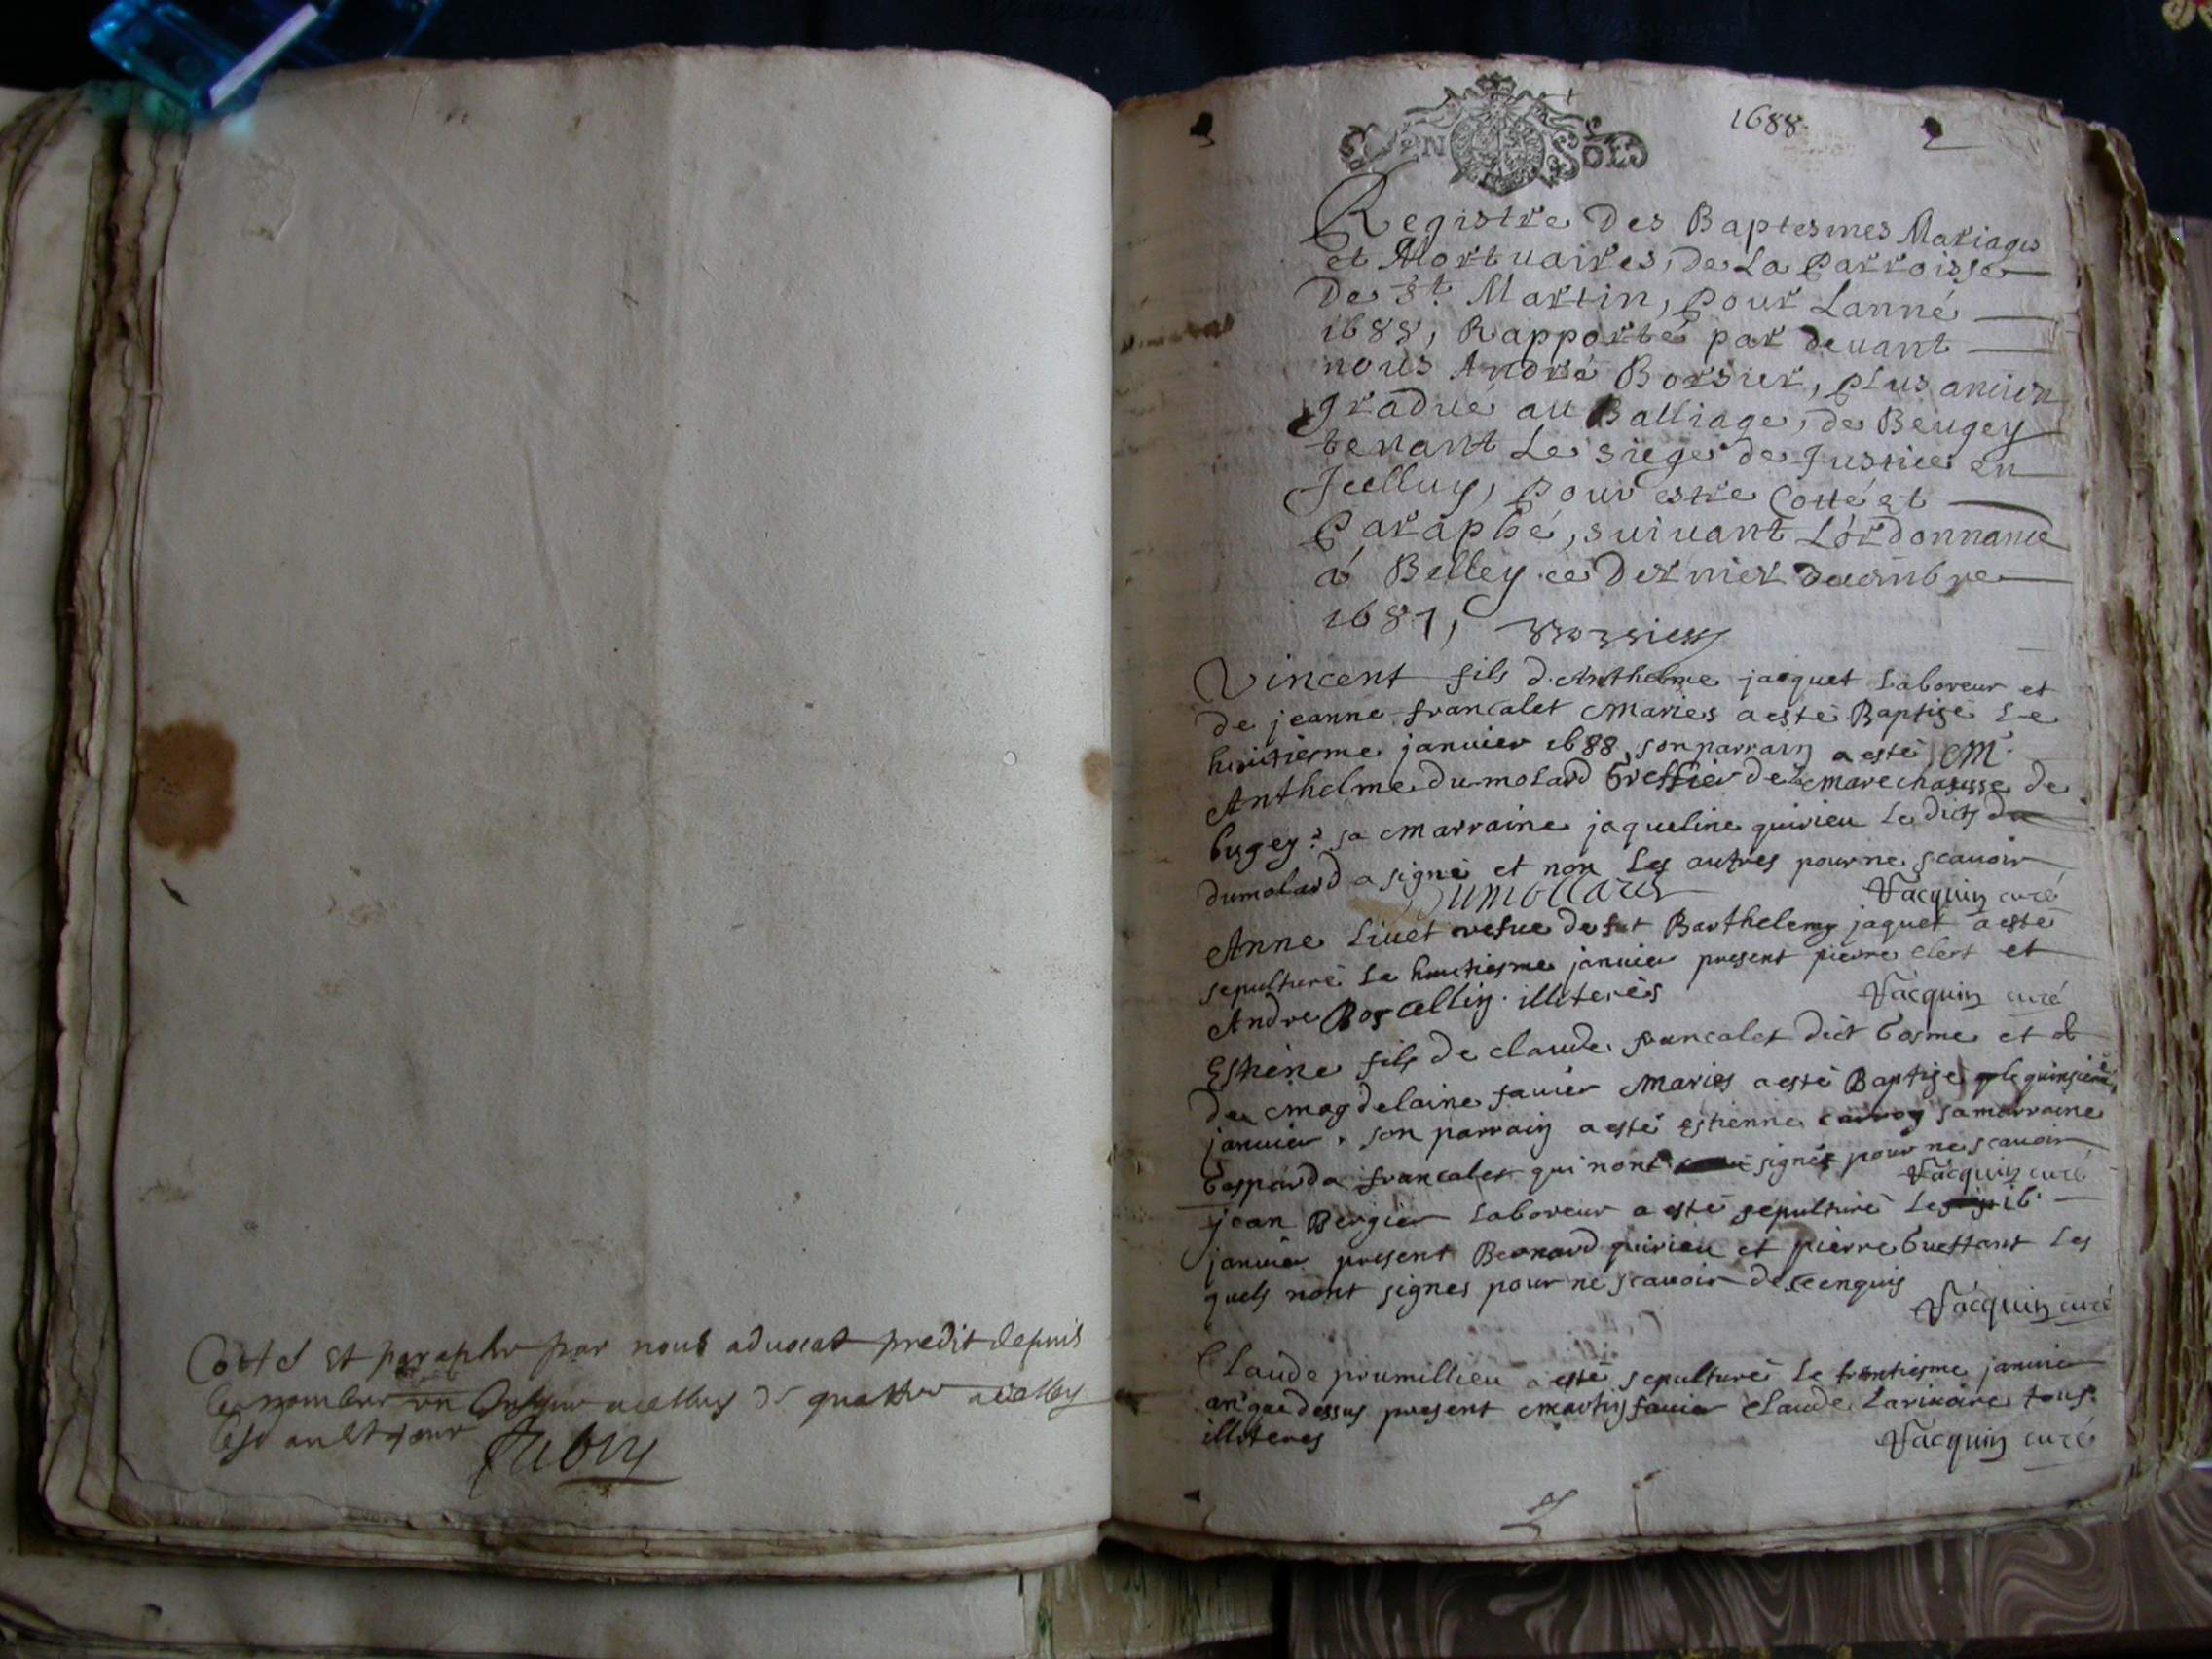 Cotté et paraphé par nous advocat predit depuis
le nombre un jusques a celluy de quatre a
1688
Registre Des Baptesmes Mariages
et Mortuaires, de La Parroisse
De St. Martin, Pour Lanné
1688, Rapporté par devant
nous André Borsier, Plus ancien
gradué au Balliage, de Beugey
tenant Le siege de Justice en
Icelluy, Pour estre Cotté et
Paraphé, suivant L'ordonnance
á Belley ce Dernier decembre
1687,
Vincent fils d'Anthelme jaquet Laboreur et
de jeanne francalet Maries a esté Baptisé Le
huictiesme janvier 1688, son parrain a esté Mr.
Anthelme dumolard Greffier de La marechausse de
bugey: sa Marraine jaqueline quirieu Le dict du
dumolard a signé et non Les autres pour ne scavoir
Dumollard Jacquin curé
Anne Livet vefue de fut Barthelemy jaquet a esté
sepulturé Le huictiesme janvier present pierre clert et
Andre Borcellin illiterés Jacquin curé
Estiene fils de claude francalet dict Cosme et d
de Magdelaine favier Maries a esté Baptisé le quinsiem
janvier. son parrain a esté estienne carroy sa marraine
Gasparda francalet qui nont signés pour ne scavoir
Jacquin curé
jean Bergier Laboreur a esté sepulturé Le 16
janvier present Bernard quirieu et pierre buettant Les
quels nont signes pour ne scavoir de ce enquis
Jacquin curé
Claude prumillieu a esté sepulturé Le trentiesme janvier
an que dessus present Martin favier Claude Lariuoire tous
illiteres Jacquin curé